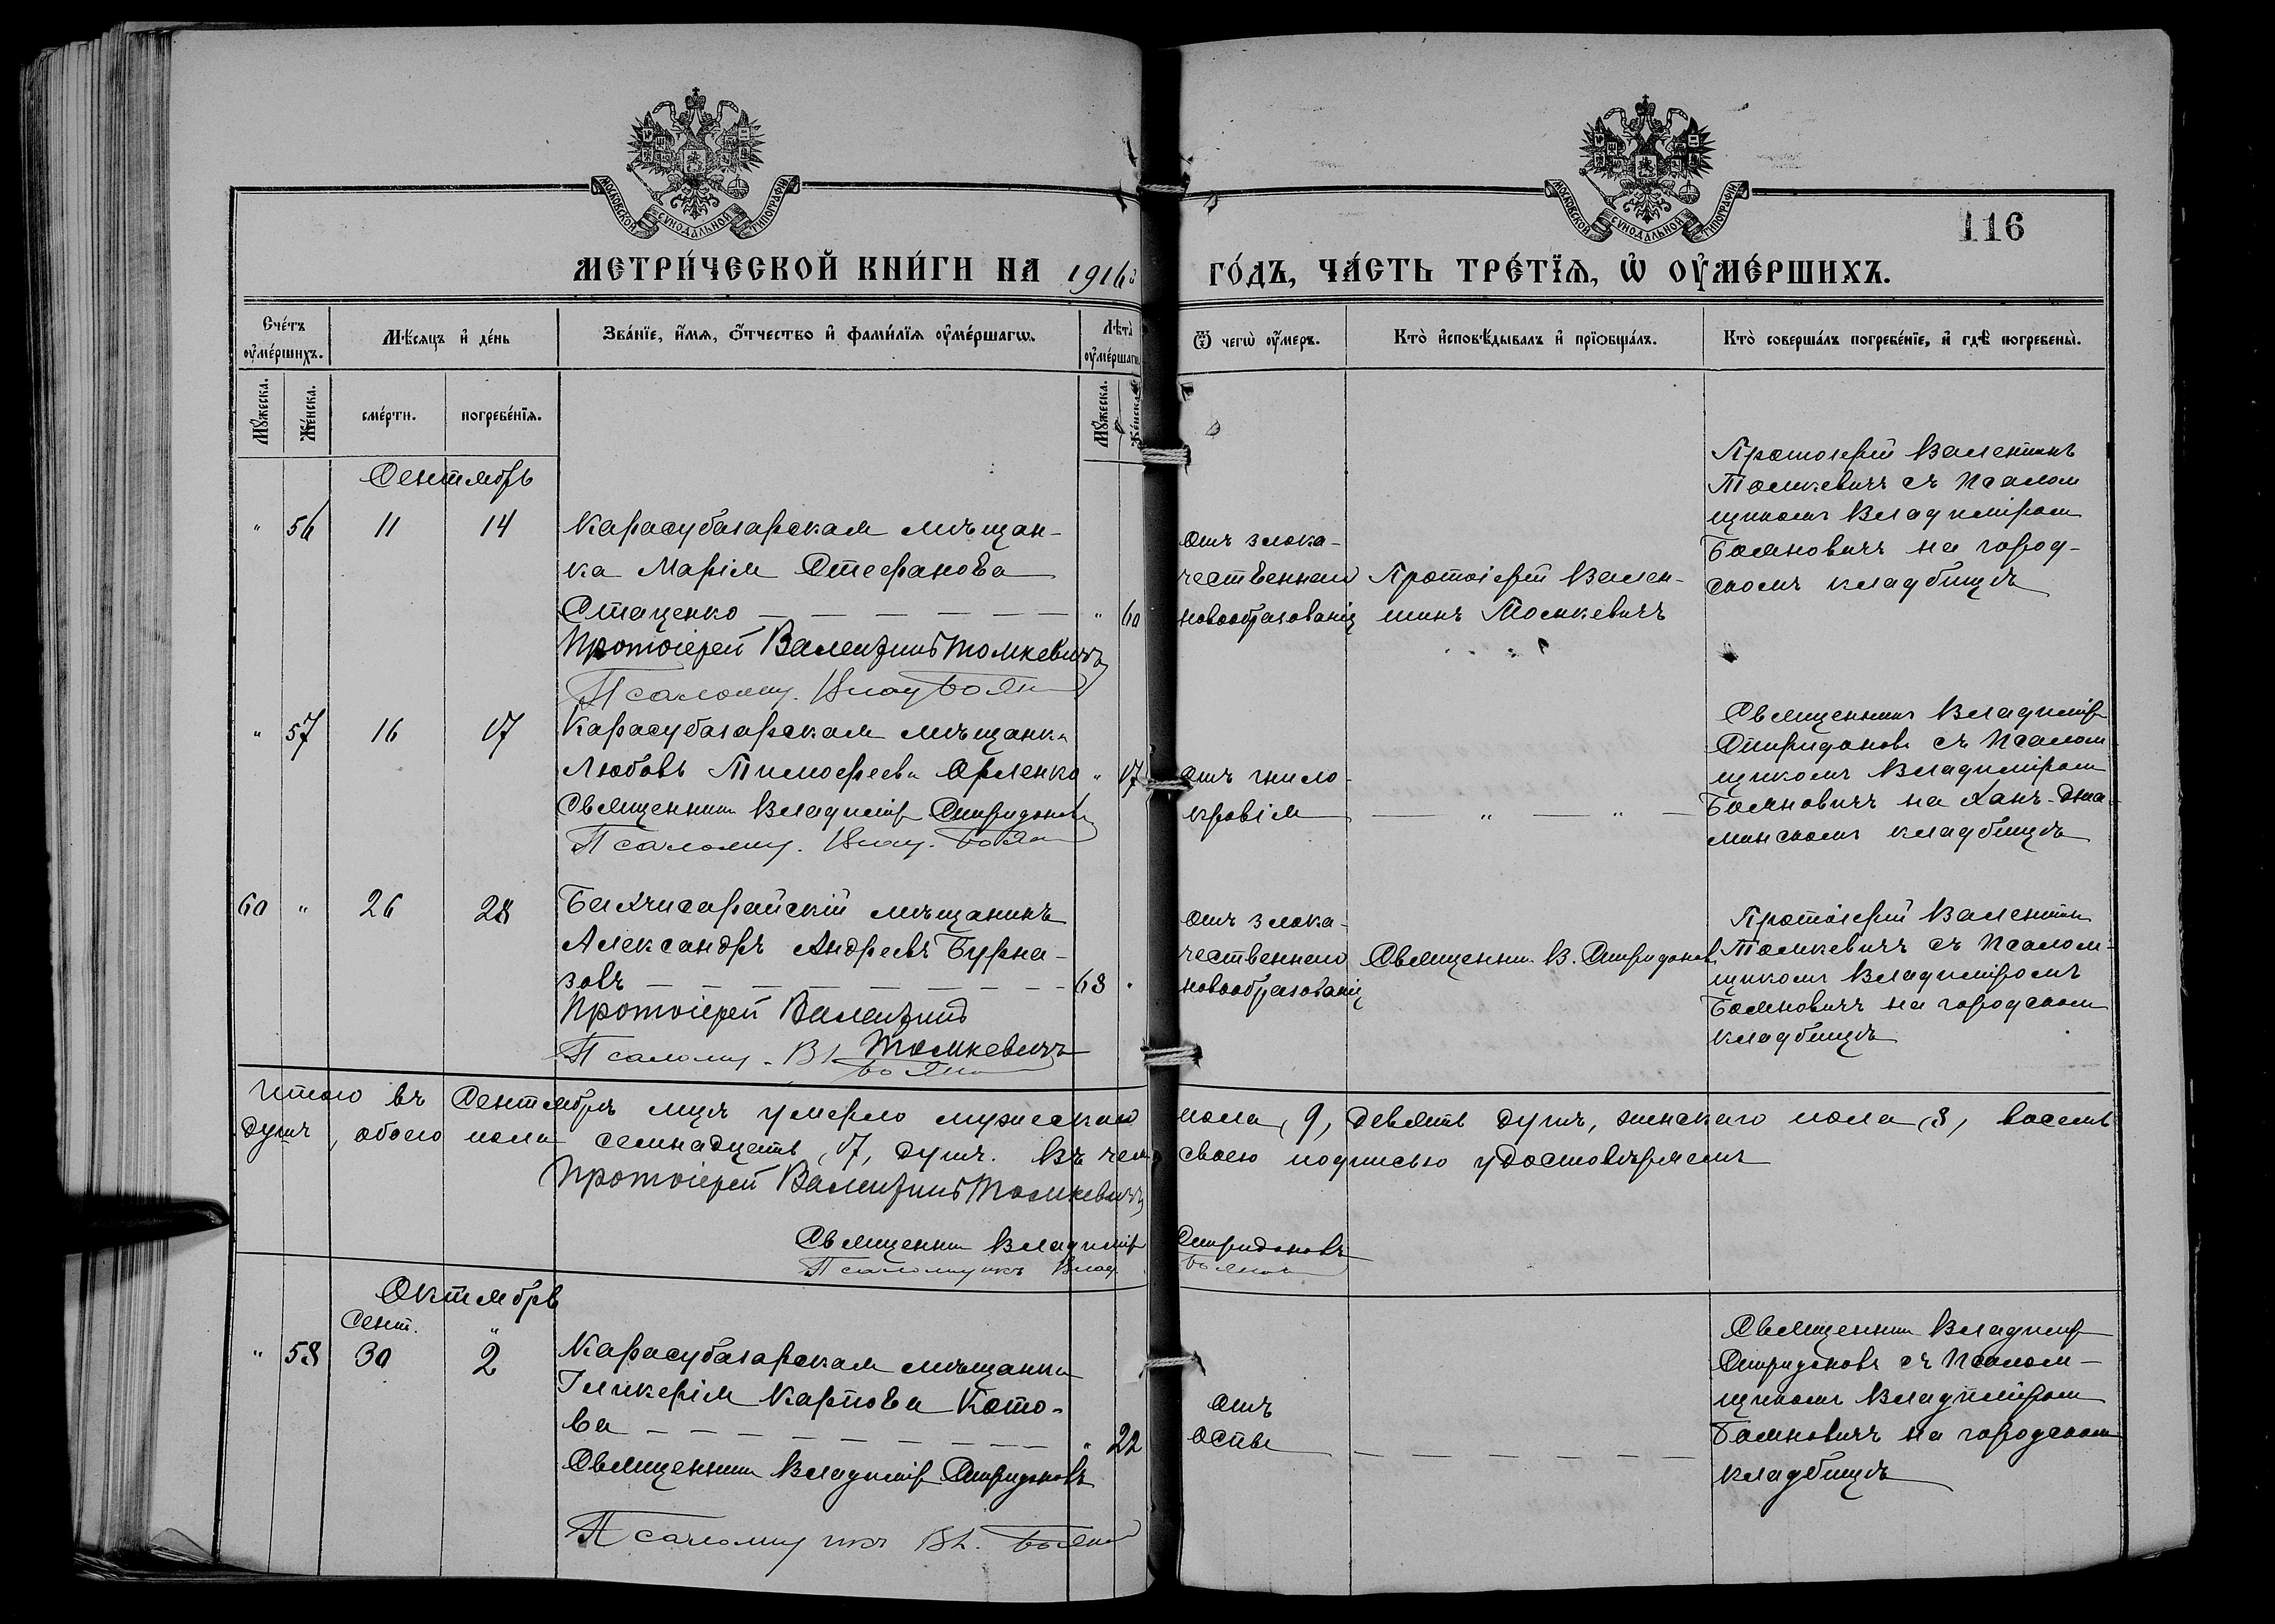 МОСКОВСКОЙ СѴНОДАЛЬНОЙ ТИПОГРАФІИ
МОСКОВСКОЙ СѴНОДАЛЬНОЙ ТИПОГРАФІИ
116
МЕТРИ́ЧЕСКОЙ КНИ́ГИ НА 1916й
ГО́ДЪ, ЧА́СТЬ ТРЕ́ТЇѦ, Ѡ҆ ОУ҆МЕ́РШИХЪ.
Сче́тъ оу҆ме́ршихъ.
Мѣ́сяцъ и҆ де́нь
Зва́нїе, и҆́мѧ, ѻ҆́тчество и҆ фами́лїѧ оу҆ме́ршагѡ.
Лѣ́та оу҆ме́ршагѡ
Ѿ чегѡ̀ оу҆́меръ.
Кто̀ и҆сповѣ́дывалъ и҆ прїѡбща́лъ.
Кто̀ соверша́лъ погребе́нїе, и҆ гдѣ̀ погребены̀.
Мꙋ́жеска.
Же́нска.
сме́рти.
погребе́нїѧ.
Мꙋ́жеска.
Же́нска.
Сентябрь
" 56 11 14
Карасубазарская мѣщан-
ка Марія Стефанова
Стаценко — — — — — — " 60
Протоіерей Валентинъ Томкевичъ
Псаломщ. Влад. Боян
отъ злока-
чественнаго
новообразованія
Протоіерей Вален-
тинъ Томкевичъ
Протоіерей Валентинъ
Томкевичъ съ Псалом
щикомъ Владиміром
Бояновичъ на город-
скомъ кладбищѣ
" 57 16 17
Карасубазарская мѣщанка
Любовь Тимофеева Орленко " 17
Священник Владимір Спиридоновъ
Псаломщ. Влад. Боян
отъ гнило-
кровія
— " — " —
Священник Владимір
Спиридоновъ съ Псалом
щикомъ Владиміром
Бояновичъ на Ханъ-Джа-
минскомъ кладбищѣ
60 " 26 28
Бахчисарайскій мѣщанинъ
Александръ Андреевъ Бурна-
зовъ — — — — — — — — 68 "
Протоіерей Валентинъ
Томкевичъ
Псаломщ. Вл. Боян
отъ злока-
чественнаго
новообразованія
Священник В. Спиридонов
Протоіерей Валентин
Томкевичъ съ Псалом-
щикомъ Владиміромъ
Бояновичъ на городском
кладбищѣ
Итого въ Сентябрѣ мцѣ умерло мужескаго пола, 9, девять душъ, женскаго пола, 8, восемь
душъ, обоего пола семнадцать, 17, душъ. Въ чемъ своею подписью удостовѣряемъ
Протоіерей Валентинъ Томкевичъ
Священник Владимір Спиридоновъ
Псаломщикъ Влад. Боянов
Октябрь
Сент. "
" 58 30 2
Карасубазарская мѣщанка
Гликерія Карпова Кото-
ва — — — — — — — — " 22
Священник Владимір Спиридоновъ
Псаломщикъ Вл. Боян
отъ
оспы
— — — — — —
Священник Владимір
Спиридоновъ съ Псалом-
щикомъ Владиміром
Бояновичъ на городском
кладбищѣ